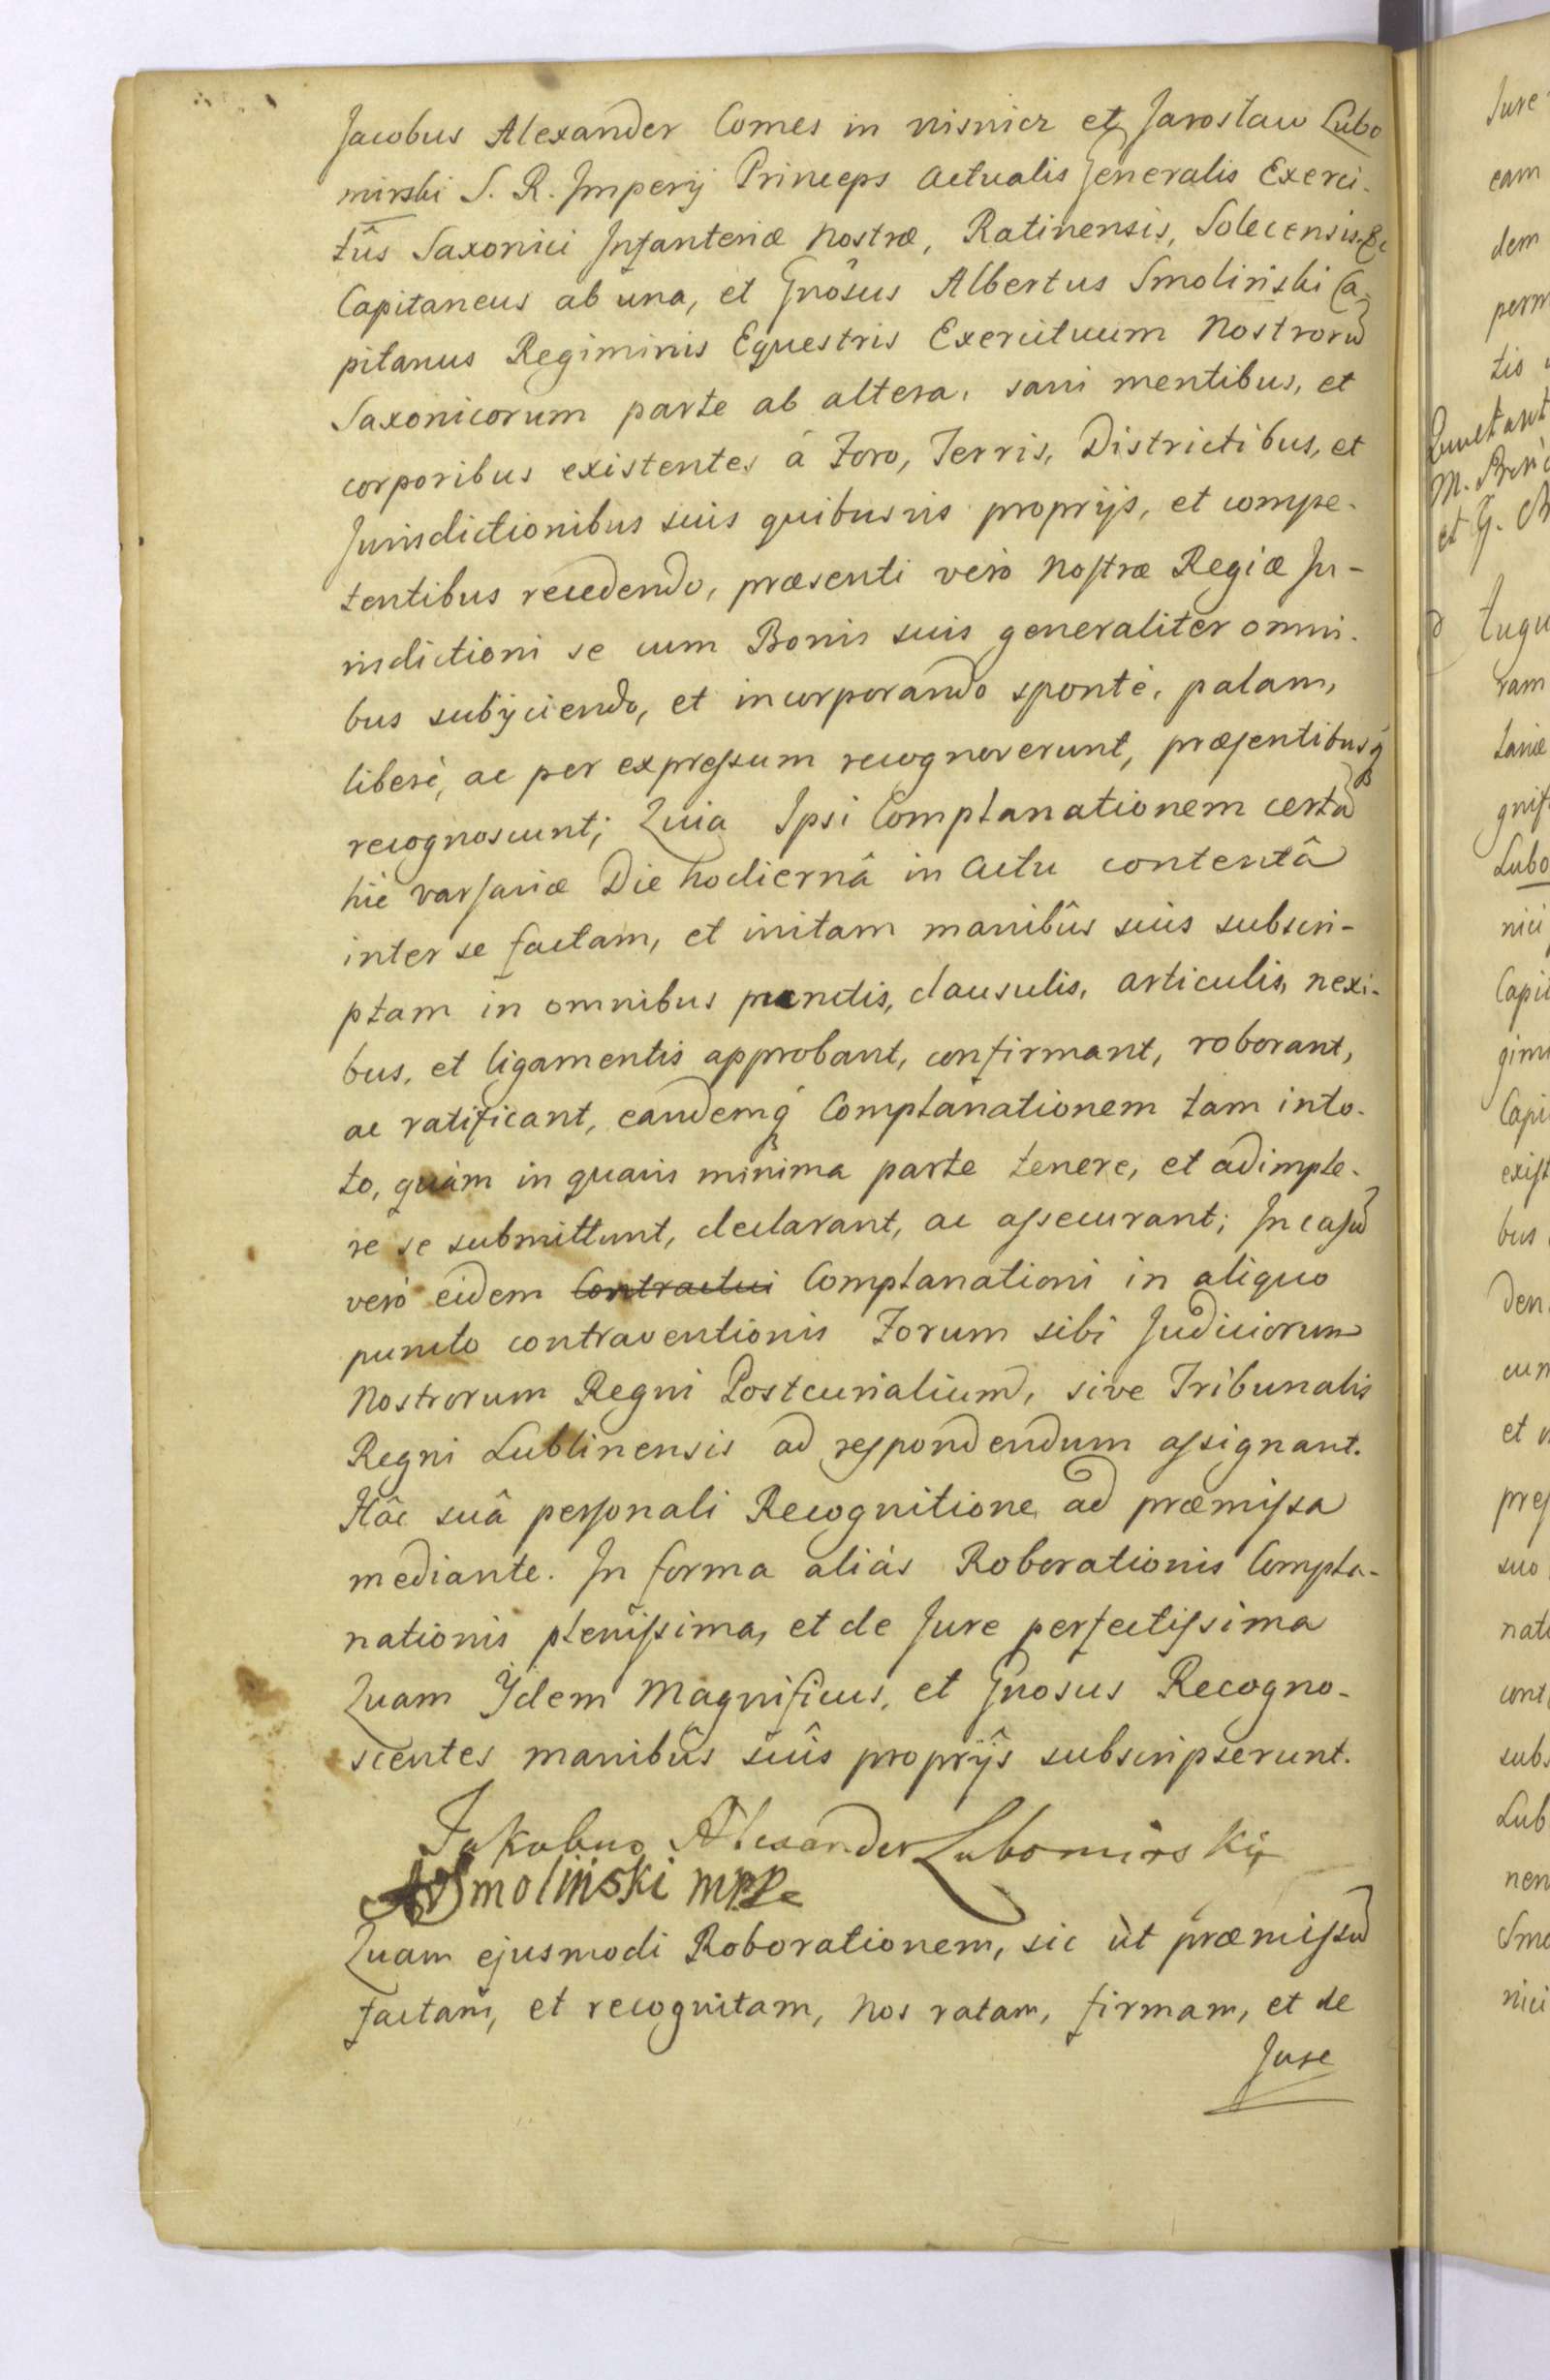 Jacobus Alexander Comes in Wisnicz et Jarosław Lubo
mirski S. R. Imperij Princeps Actualis Generalis Exerci-
tûs Saxonici Infanteriæ Nostræ, Ratinensis, Solecensis &c
Capitaneus ab una, et Gnôsus Albertus Smoliński Ca-
pitanus Regiminis Equestris Exercituum Nostrorũ
Saxonicorum parte ab altera, sani mentibus, et
corporibus existentes á Foro, Terris, Districtibus, et
Jurisdictionibus suis quibusvis proprijs, et compe-
tentibus recedendo, præsenti verò Nostræ Regiæ Ju-
risdictioni se cum Bonis suis generaliter omni-
bus subijciendo, et incorporando spontè, palam,
liberè, ac per expressum recognoverunt, præsentibusq́
recognoscunt; Quia Ipsi Complanationem certã
hic Varsaviæ Die hodiernâ in Actu contentâ
inter se factam, et initam manibûs suis subscri-
ptam in omnibus punctis, clausulis, articulis, nexi-
bus, et ligamentis approbant, confirmant, roborant,
ac ratificant, eandemq́ Complanationem tam in to-
to, quàm in quavis minima parte tenere, et adimple-
re se submittunt, declarant, ac assecurant; In casũ
verò eidem Contractui Complanationi in aliquo
puncto contraventionis Forum sibi Judiciorum
Nostrorum Regni Postcurialium, sive Tribunalis
Regni Lublinensis ad respondendum assignant.
Hâc suâ personali Recognitione ad præmissa
mediante. In forma aliàs Roborationis Compla-
nationis plenissima, et de Jure perfectissima
Quam Ijdem Magnificus, et Gnosus Recogno-
scentes manibûs suîs proprijs subscripserunt.
Jakobus Alexander Lubomirskij
A Smoliński mpp
Quam ejusmodi Roborationem, sic ùt præmissũ
factam, et recognitam, Nos ratam, firmam, et de
Jure
Jure
eam
dem
perm
tis
M.
et G.
tugu
ram
taniæ
gnif
Lubo
nici
Capi
gimi
Capi
exist
bus
den
cum
et
pres
suo
nati
cont
subs
Lub
nen
Smo
nici